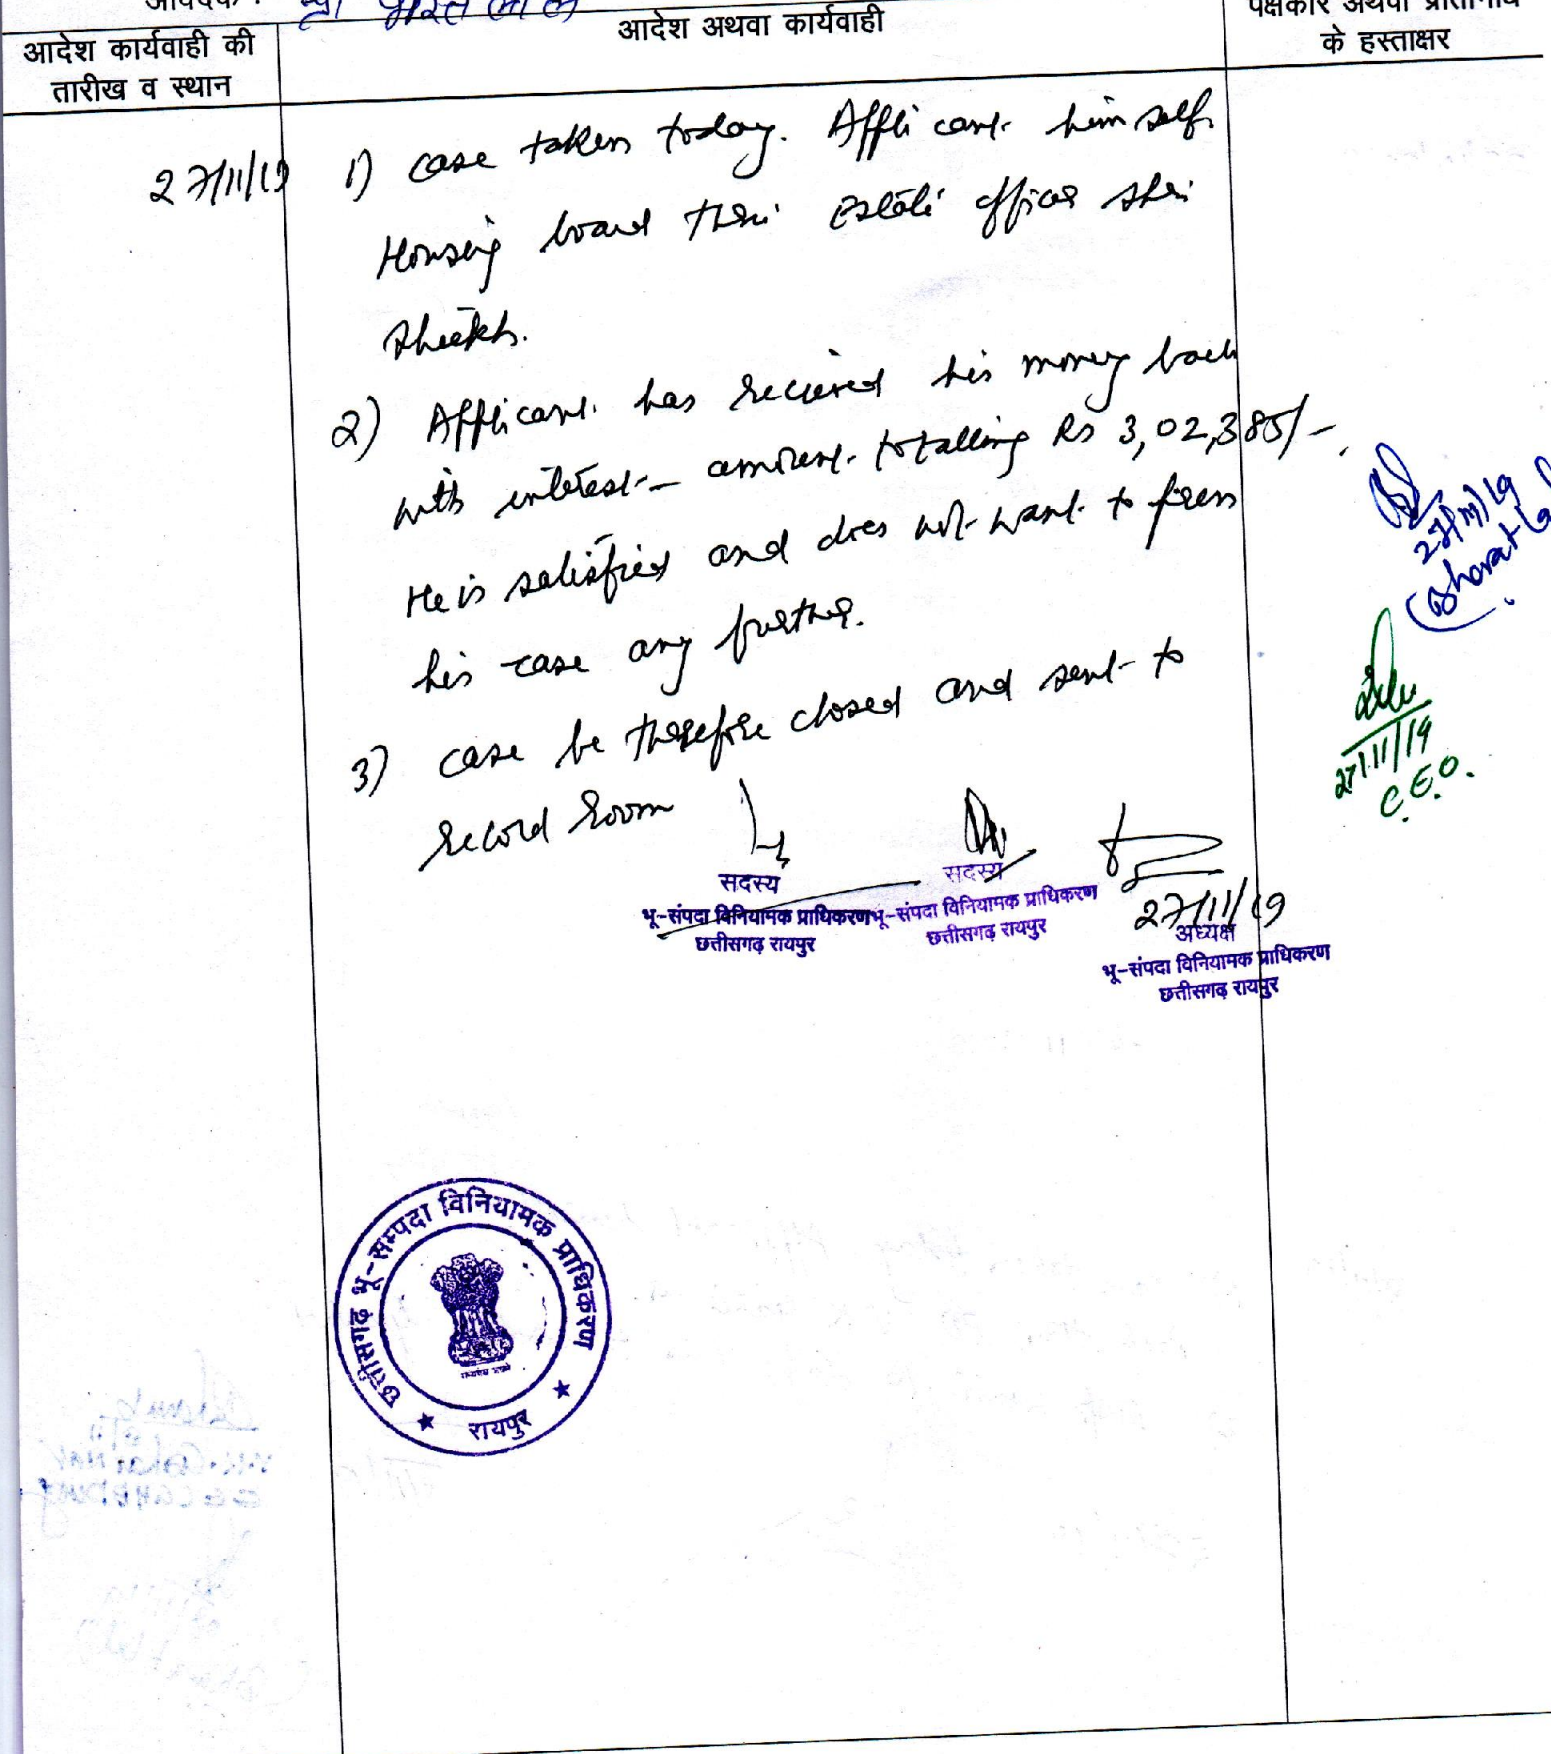 आवेदक : श्री भारत लाल
आदेश कार्यवाही की
तारीख व स्थान
आदेश अथवा कार्यवाही
पक्षकार अथवा प्रतिनिधि
के हस्ताक्षर
27/11/19
1) case taken today. Applicant himself
Housing board thri Estate officer shri
Sheikh.
2) Applicant has recieved his money back
with interest - amount totalling Rs 3,02,385/-.
He is satisfied and does not want to press
his case any further.
3) case be therefore closed and sent to
record room
27/11/19
Bharat
27/11/19
C.E.O.
सदस्य
भू-संपदा विनियामक प्राधिकरण
छत्तीसगढ़ रायपुर
सदस्य
भू-संपदा विनियामक प्राधिकरण
छत्तीसगढ़ रायपुर
27/11/19
अध्यक्ष
भू-संपदा विनियामक प्राधिकरण
छत्तीसगढ़ रायपुर
छत्तीसगढ़ भू-सम्पदा विनियामक प्राधिकरण
रायपुर